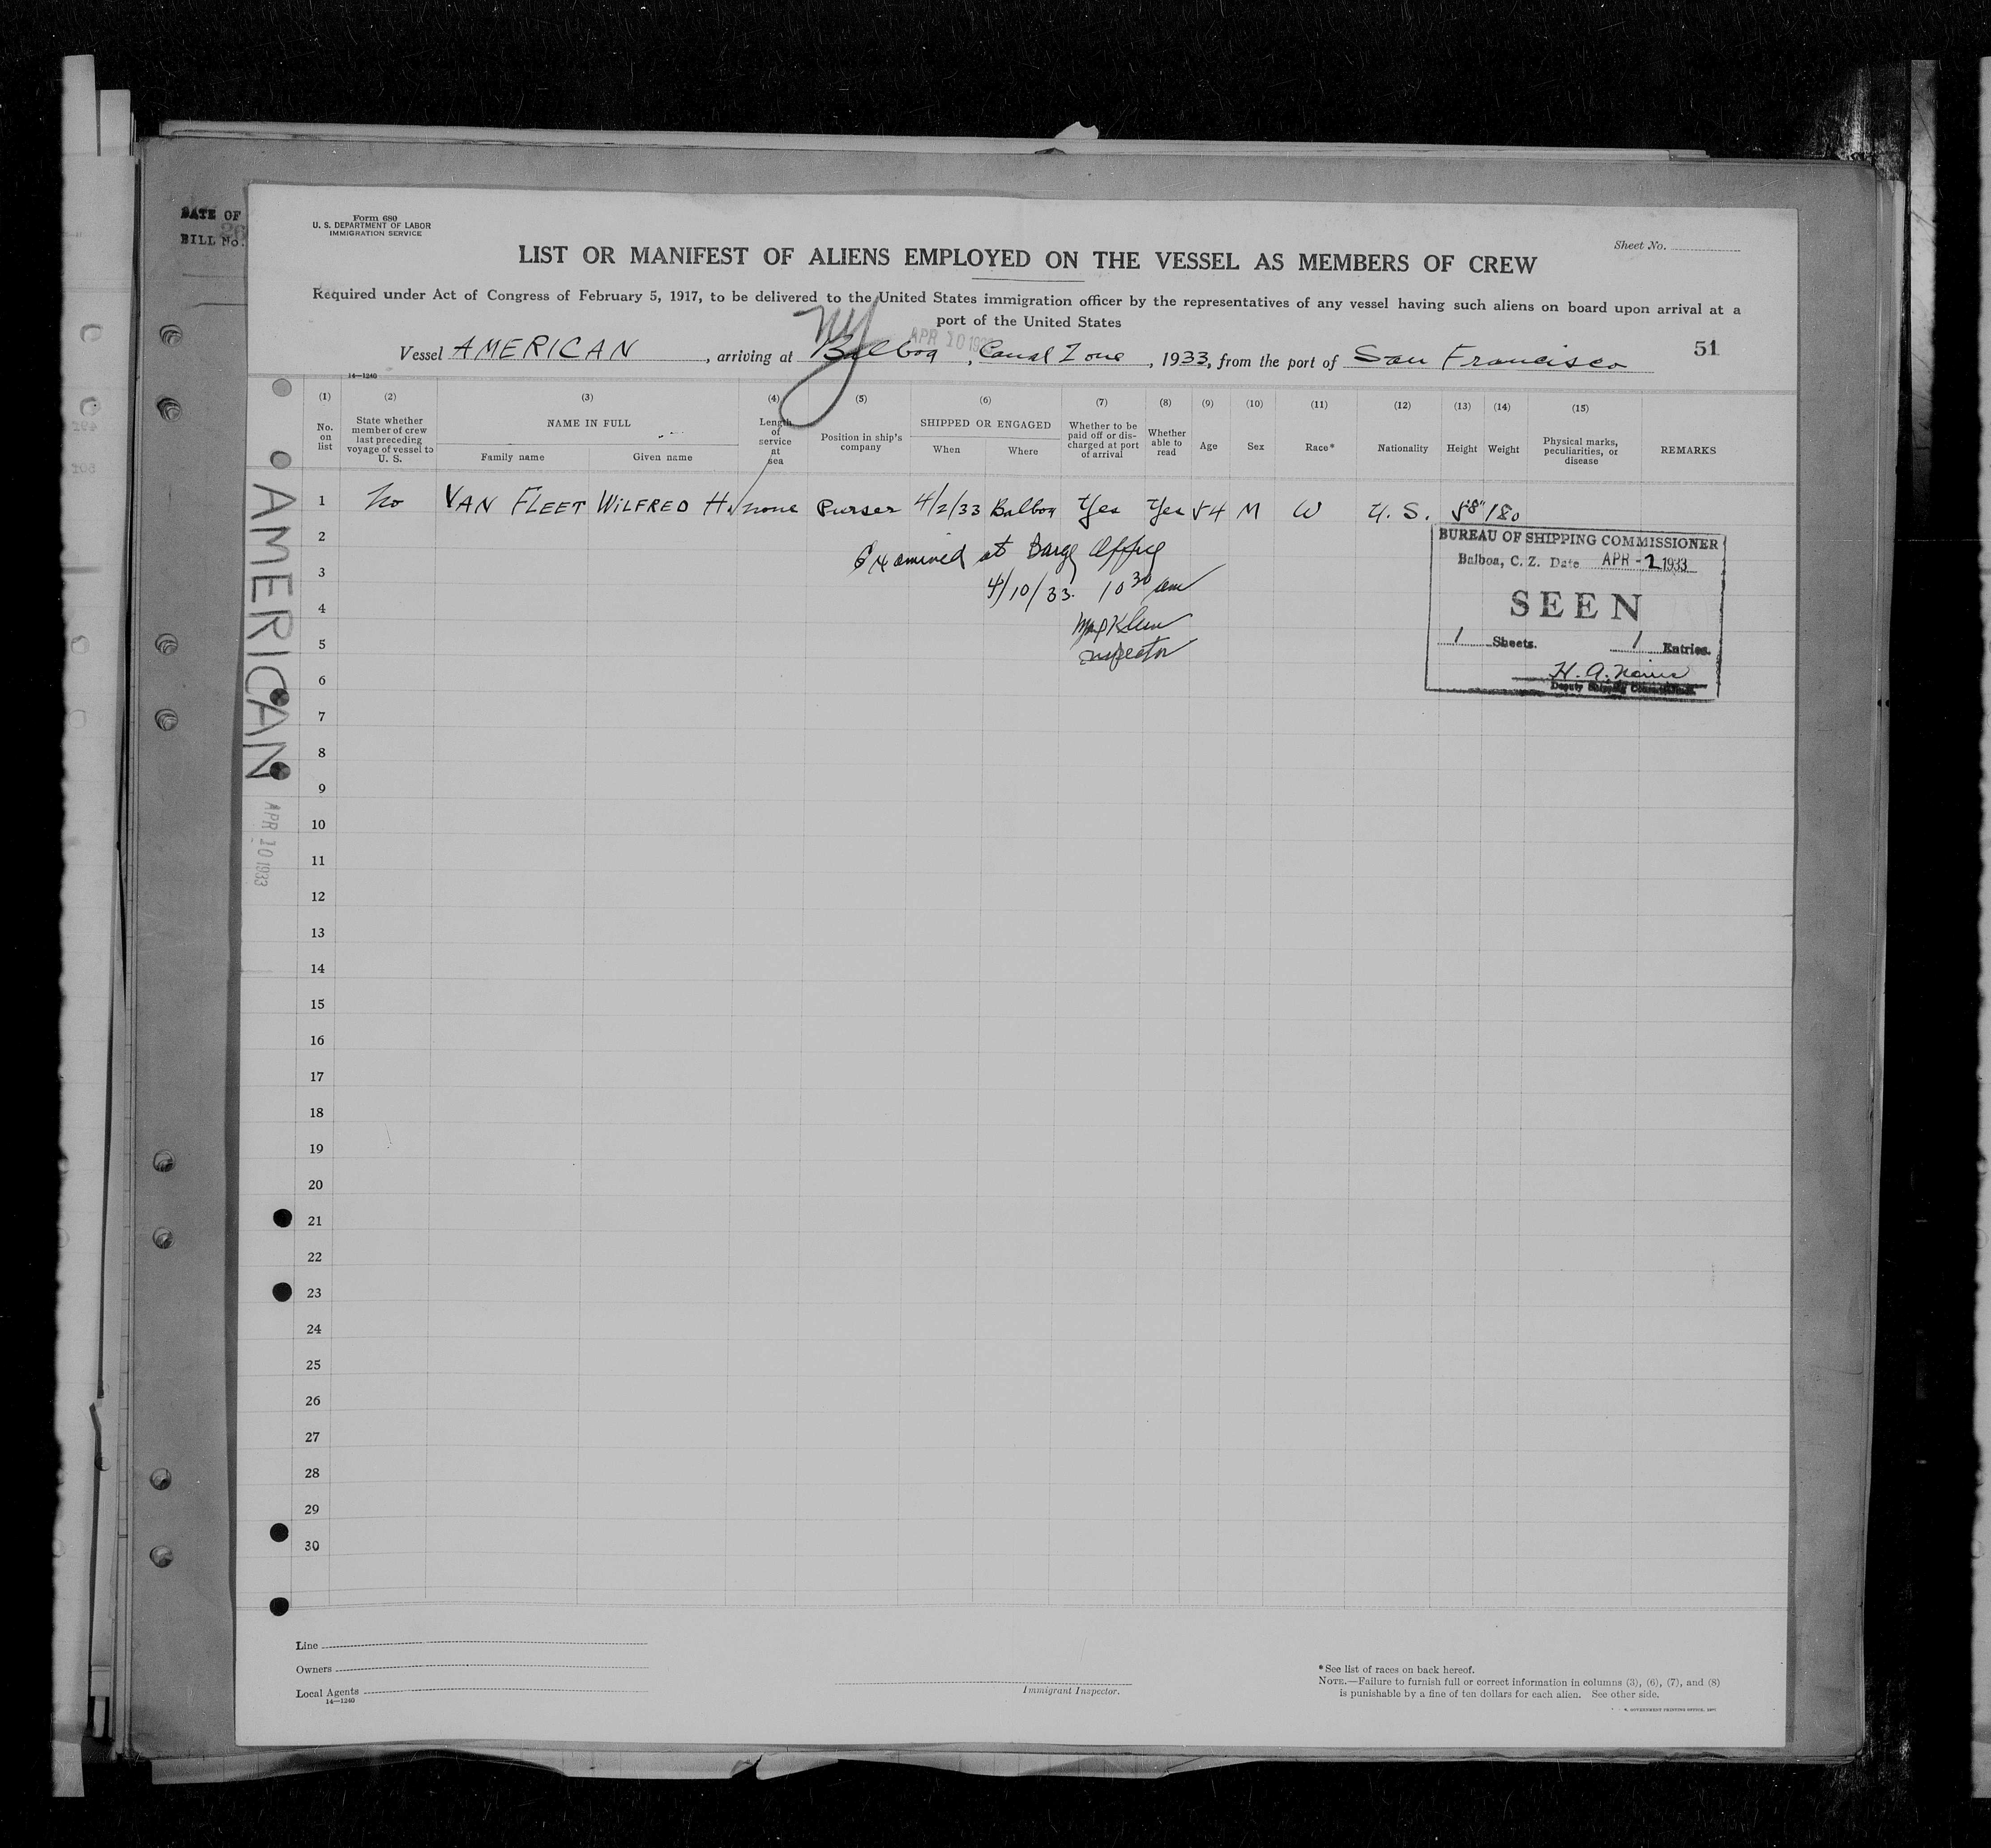 DATE OF
BILL No.
Form 680
U. S. DEPARTMENT OF LABOR
IMMIGRATION SERVICE
Sheet No.
LIST OR MANIFEST OF ALIENS EMPLOYED ON THE VESSEL AS MEMBERS OF CREW
Required under Act of Congress of February 5, 1917, to be delivered to the United States immigration officer by the representatives of any vessel having such aliens on board upon arrival at a
port of the United States
NY
APR 10 193
Vessel AMERICAN, arriving at Balboa, Canal Zone, 1933, from the port of San Francisco
51
14—1240
(1) (2) (3) (4) (5) (6) (7) (8) (9) (10) (11) (12) (13) (14) (15)
No. on list
State whether member of crew last preceding voyage of vessel to U. S.
NAME IN FULL
Family name
Given name
Length of service at sea
Position in ship's company
SHIPPED OR ENGAGED
When
Where
Whether to be paid off or discharged at port of arrival
Whether able to read
Age
Sex
Race*
Nationality
Height
Weight
Physical marks, peculiarities, or disease
REMARKS
1 No VAN FLEET WILFRED H. none Purser 4/2/33 Balboa Yes Yes 54 M W U. S. 5'8" 180
2
Examined at Barge Office
3
4/10/33. 10 30 am
4
5
Inspector
BUREAU OF SHIPPING COMMISSIONER
Balboa, C. Z. Date APR - 2 1933
SEEN
1 Sheets. 1 Entries.
H. A.
Deputy Shipping Commissioner.
6
7
8
9
10
11
12
13
14
15
16
17
18
19
20
21
22
23
24
25
26
27
28
29
30
AMERICAN
APR 10 1933
Line
Owners
Local Agents
14—1240
Immigrant Inspector.
*See list of races on back hereof.
NOTE.—Failure to furnish full or correct information in columns (3), (6), (7), and (8)
is punishable by a fine of ten dollars for each alien. See other side.
GOVERNMENT PRINTING OFFICE